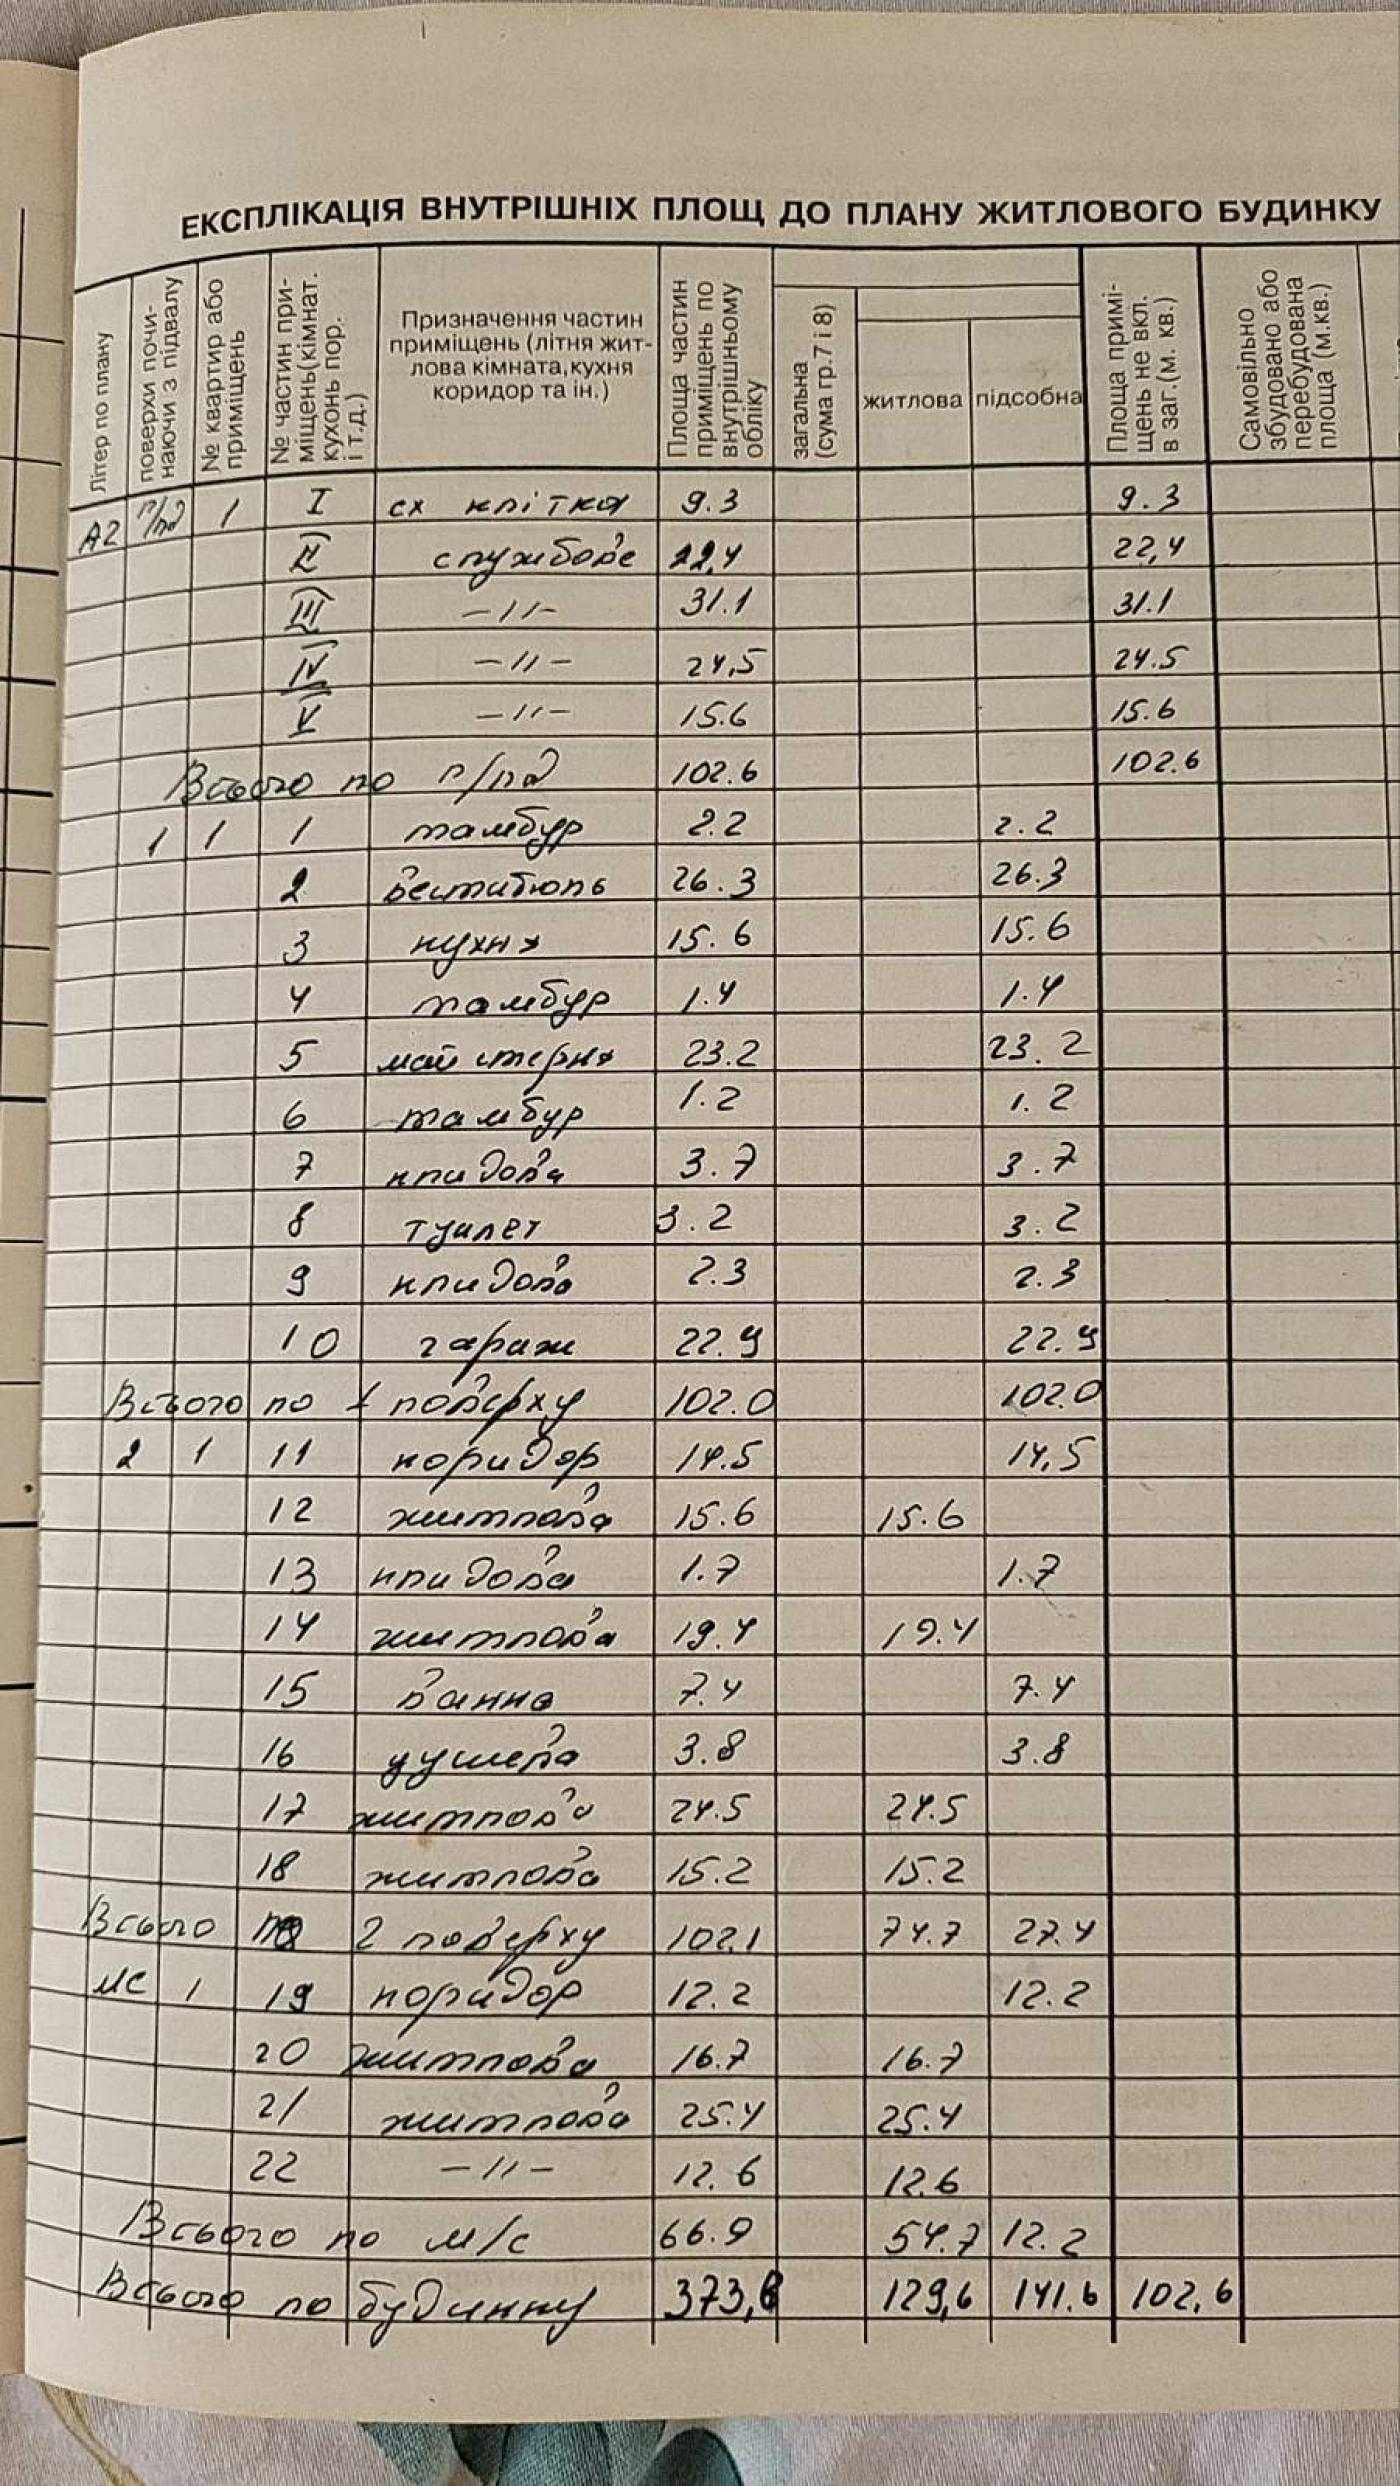 ЕКСПЛІКАЦІЯ ВНУТРІШНІХ ПЛОЩ ДО ПЛАНУ ЖИТЛОВОГО БУДИНКУ
Літер по плану
поверхи почи-
наючи з підвалу
№ квартир або
приміщень
№ частин при-
міщень(кімнат.
кухонь пор.
і т.д.)
Призначення частин
приміщень (літня жит-
лова кімната,кухня
коридор та ін.)
Площа частин
приміщень по
внутрішньому
обліку
загальна
(сума гр.7 і 8)
житлова
підсобна
Площа примі-
щень не вкл.
в заг.(м. кв.)
Самовільно
збудовано або
перебудована
площа (м.кв.)
А2 п/пд 1 I сх клітка 9.3 9.3
II службове 22,4 22,4
III —〃— 31.1 31.1
IV —〃— 24,5 24.5
V —〃— 15.6 15.6
Всього по п/пд 102.6 102.6
1 1 1 тамбур 2.2 2.2
2 вестибюль 26.3 26.3
3 кухня 15.6 15.6
4 тамбур 1.4 1.4
5 майстерня 23.2 23.2
6 тамбур 1.2 1.2
7 кладова 3.7 3.7
8 туалет 3.2 3.2
9 кладова 2.3 2.3
10 гараж 22.9 22.9
Всього по 1 поверху 102.0 102.0
2 1 11 коридор 14.5 14,5
12 житлова 15.6 15.6
13 кладова 1.7 1.7
14 житлова 19.4 19.4
15 ванна 7.4 7.4
16 душева 3.8 3.8
17 житлова 24.5 24.5
18 житлова 15.2 15.2
Всього по 2 поверху 102.1 74.7 27.4
МС 1 19 коридор 12.2 12.2
20 житлова 16.7 16.7
21 житлова 25.4 25.4
22 —〃— 12.6 12.6
Всього по м/с 66.9 54.7 12.2
Всього по будинку 373,6 129,6 141.6 102,6